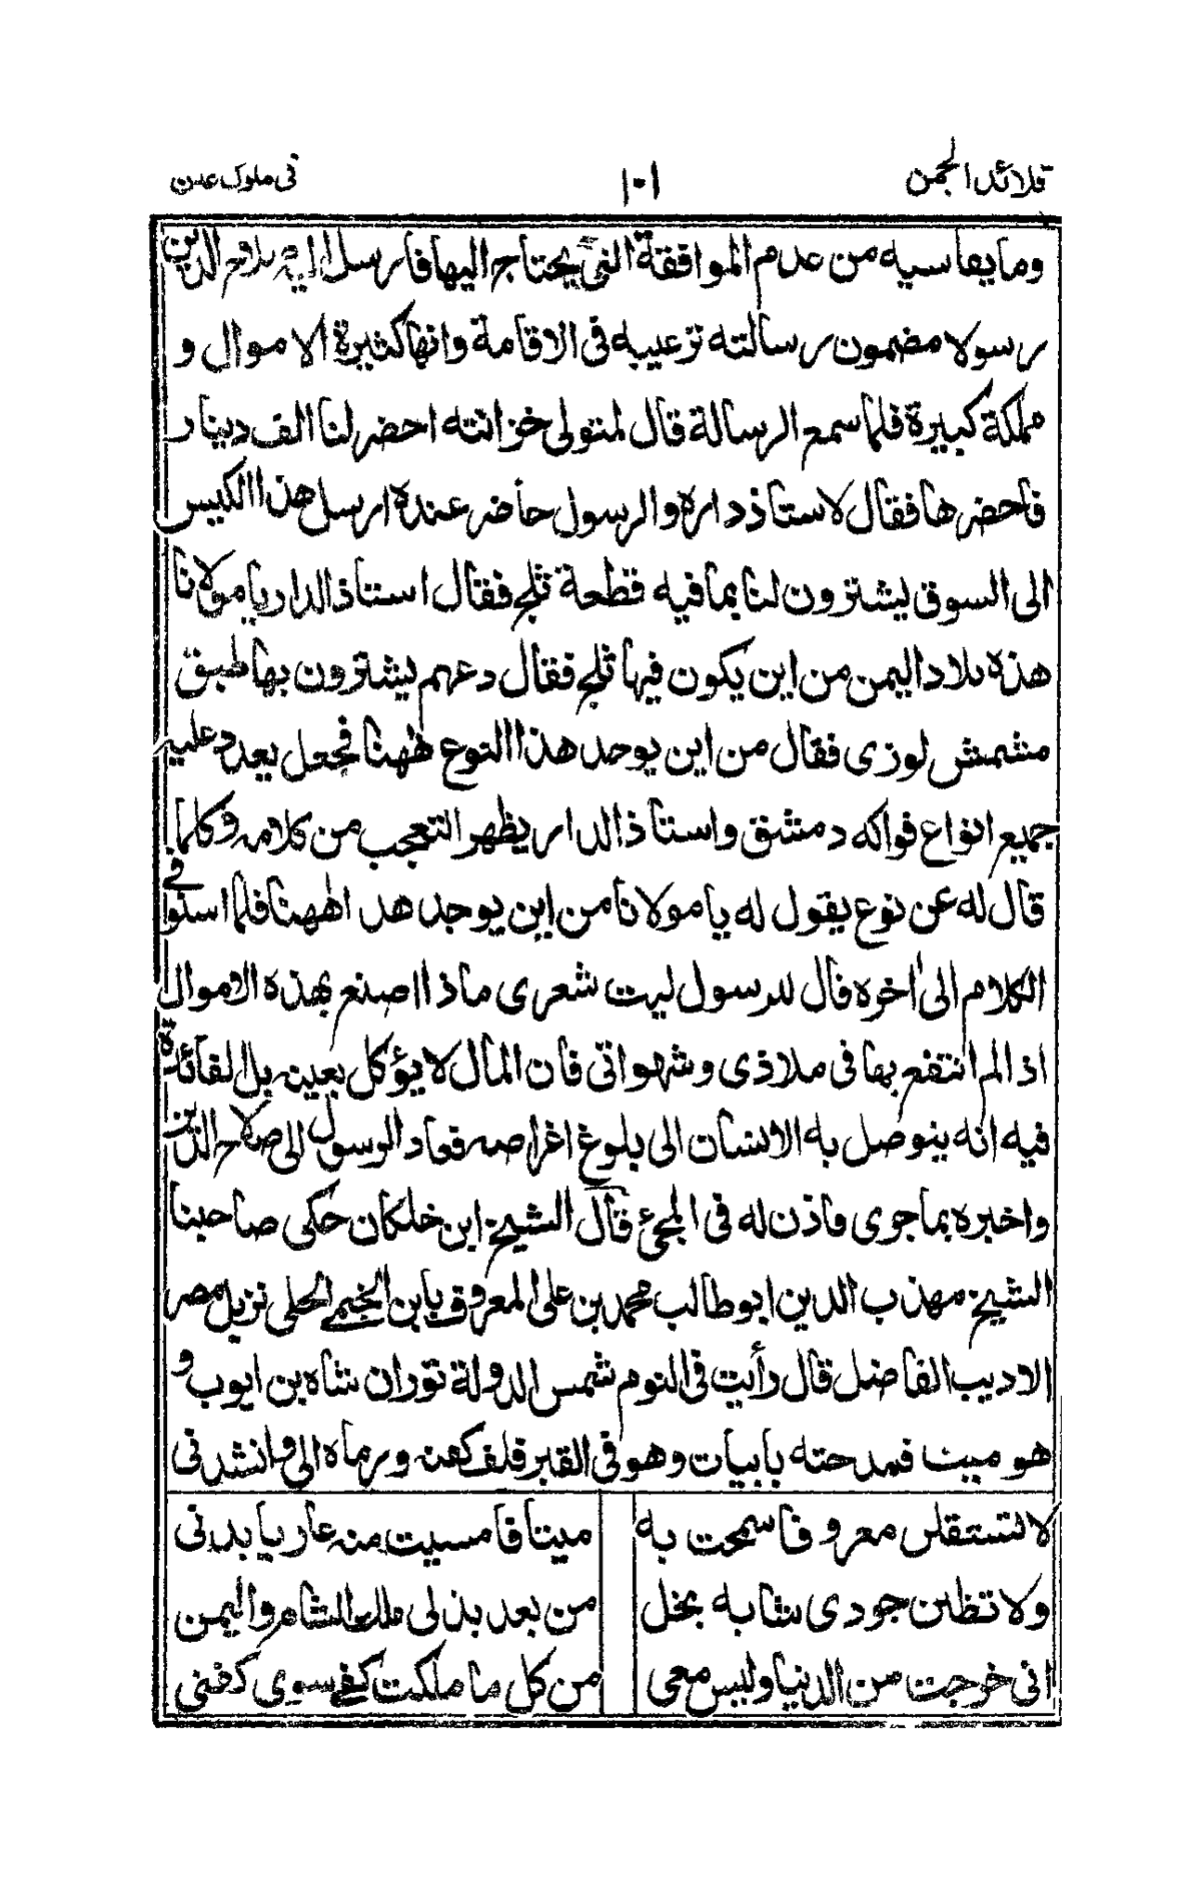 قلائد الجمن
١٠١
فى ملوك عدن
وما يقاسيه من عدم الموافقة التى يحتاج اليها فارسل اليه صلاح الدين
رسولا مضمون رسالته ترغيبه فى الاقامة وانها كثيرة الاموال و
مملكة كبيرة فلما سمع الرسالة قال لمتولى خزانته احضر لنا الف دينار
فاحضرها فقال لاستاذ داره والرسول حاضر عنده ارسل هذا الكيس
الى السوق يشترون لنا بما فيه قطعة ثلج فقال استاذ الدار يا مولانا
هذه بلاد اليمن من اين يكون فيها ثلج فقال دعهم يشترون بها طبق
مشمش لوزى فقال من اين يوجد هذا النوع ههنا فجعل يعدد عليه
جميع انواع فواكه دمشق واستاذ الدار يظهر التعجب من كلامه وكلما
قال له عن نوع يقول له يا مولانا من اين يوجد هذا ههنا فلما استوفى
الكلام الى اخره قال للرسول ليت شعرى ماذا اصنع بهذه الاموال
اذا لم انتفع بها فى ملاذى وشهواتى فان المال لا يؤكل بعينه بل الفائدة
فيه انه يتوصل به الانسان الى بلوغ اغراضه فعاد الرسول الى صلاح الدين
واخبره بما جرى فاذن له فى المجئ قال الشيخ ابن خلكان حكى صاحبنا
الشيخ مهذب الدين ابو طالب محمد بن على المعروف بابن الخيمى الحلى نزيل مصر
الاديب الفاضل قال رأيت فى النوم شمس الدولة توران شاه بن ايوب و
هو ميت فمدحته بابيات وهو فى القبر فلف كفنه ورماه الى وانشدنى
لا تستقلن معروفا سمحت به ميتا فامسيت منه عاريا بدنى
ولا تظنن جودى شابه بخل من بعد بذلى ملك الشام واليمن
انى خرجت من الدنيا وليس معى من كل ما ملكت كفى سوى كفنى